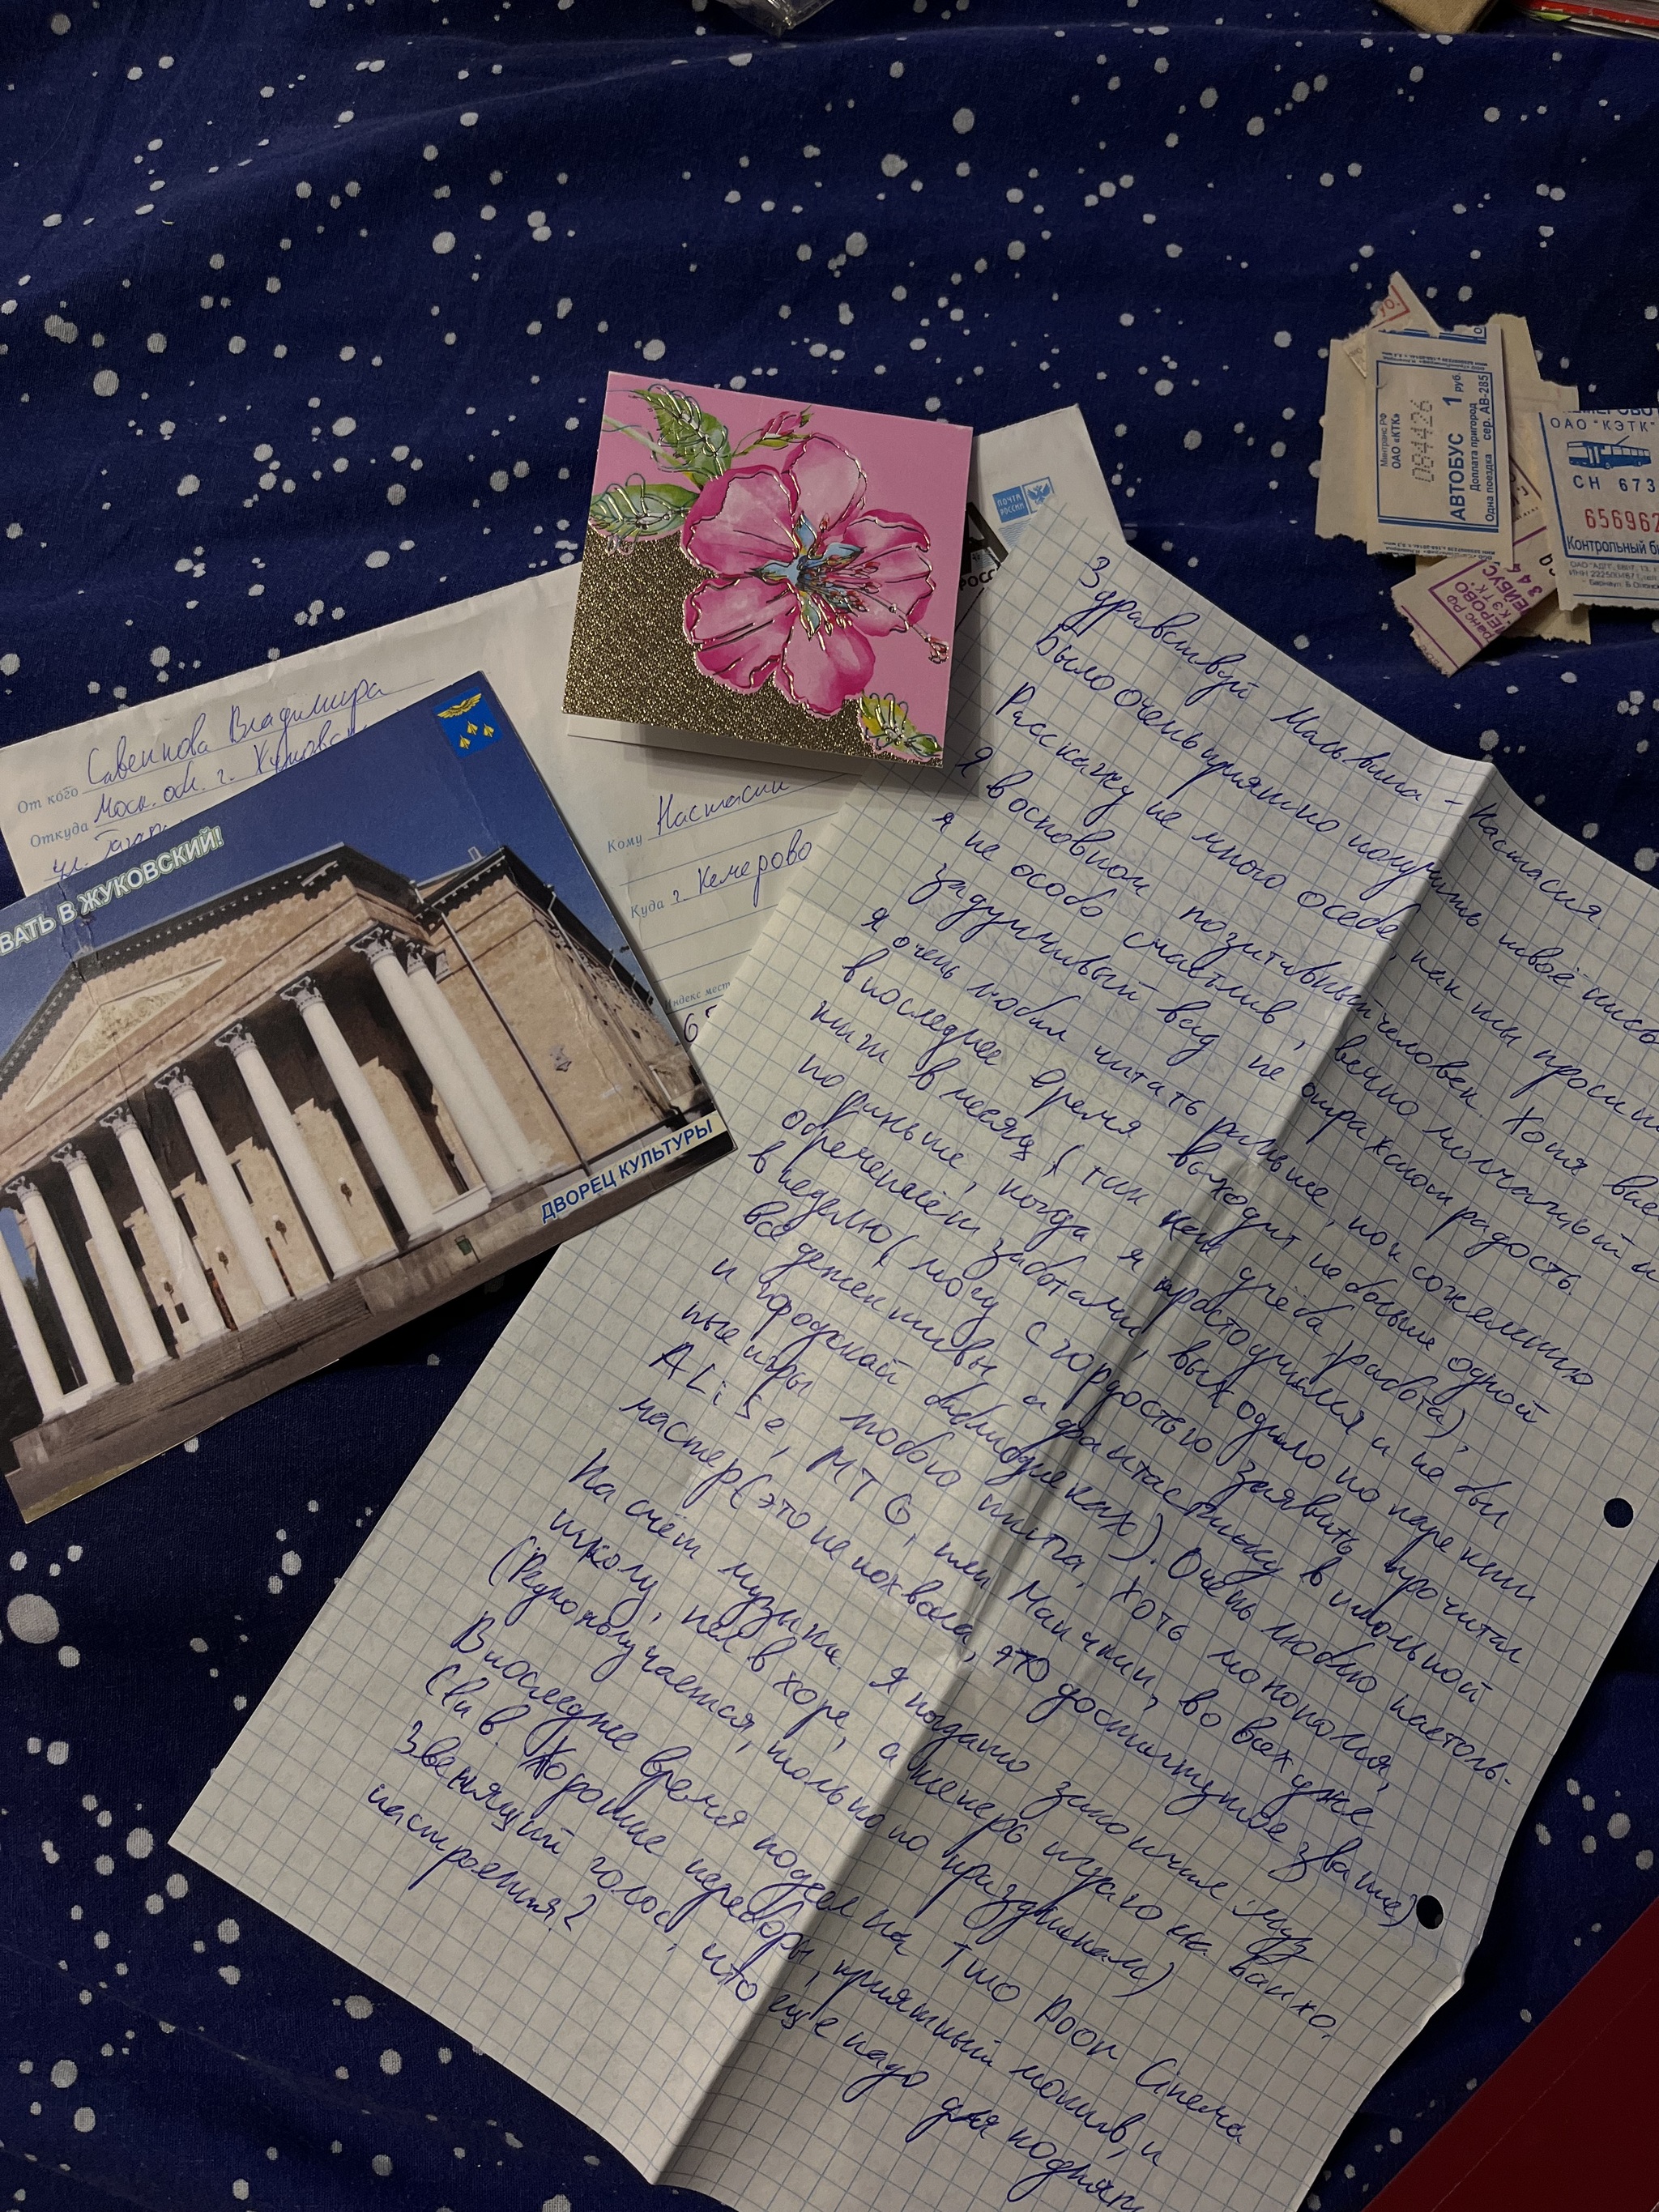 Здравствуй Мальвина - Настасия.
Было очень приятно получить твоё письмо
Расскажу не много о себе, как ты просила
Я в основном позитивный человек. Хотя вне
я не особо счастлив, вечно молчаливый и
задумчивый вид не отражают радость.
Я очень любил читать раньше, но к сожелению
в последнее время выходит не больше одной
книги в месяц, (так как учёба, работа),
но раньше, когда я просто учился и не был
обременён заботами, выходило по паре книг
в неделю (могу с гордостью заявить прочитал
все детективы и фантастику в школьной
и городской библиотеках). Очень люблю настоль-
ные игры любого типа, хоть монополия,
ALiSe, MTG, или Манчкин, во всех уже
мастер (это не похвала, это достигнутое звание)
На счёт музыки. Я недавно закончил муз
школу, пел в хоре, а теперь играю на банхо.
(Редко получается, только по праздникам)
В последнее время подсел на Two Door Cinema
Club. Хорошие переборы, приятный мотив, и
Звенящий голос, что ещё надо для поднятия
настроения?
От кого Савенкова Владимира
Откуда Моск. обл. г. Жуковский
ул.
Кому Настасии
Куда г. Кемерово
Индекс мест
ПОЧТА
РОССИИ
ВАТЬ В ЖУКОВСКИЙ!
ДВОРЕЦ КУЛЬТУРЫ
Минтранс РФ
ОАО «КТК»
084426
АВТОБУС 1 руб.
Доплата пригород
Одна поездка сер. АВ-285
КЕМЕРОВО
ОАО "КЭТК"
СН 673
656962
Контрольный би